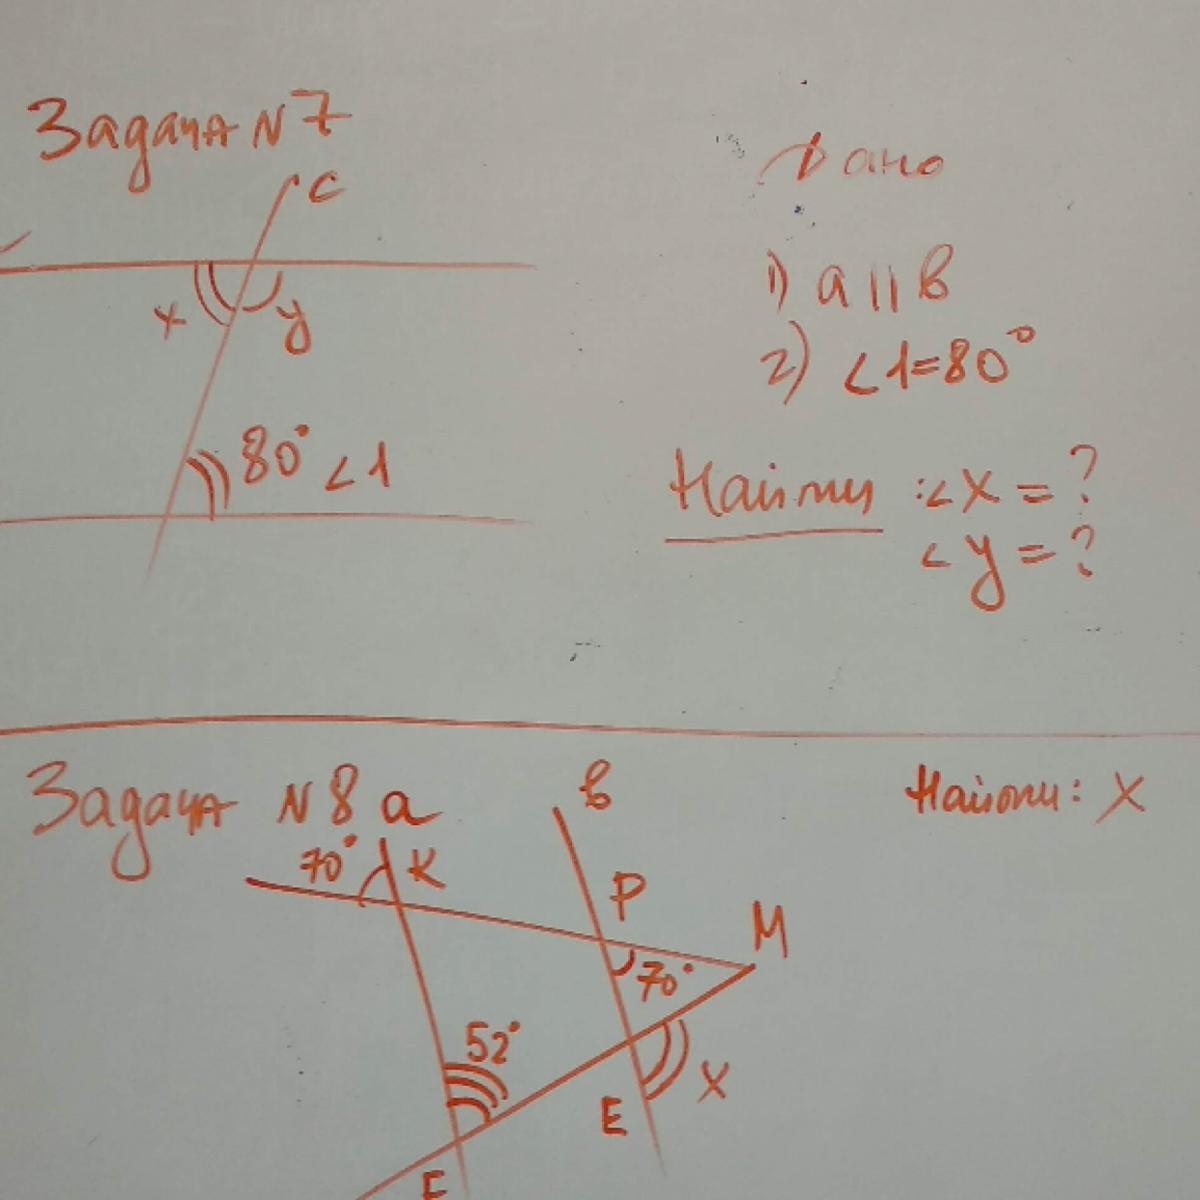 Задача N7
c
x y
80° <1
Дано
1) a || в
2) <1=80°
Найти :<x = ?
<y = ?
Задача N8
Найти: x
a
в
70° K
P
M
70°
52°
x
E
F